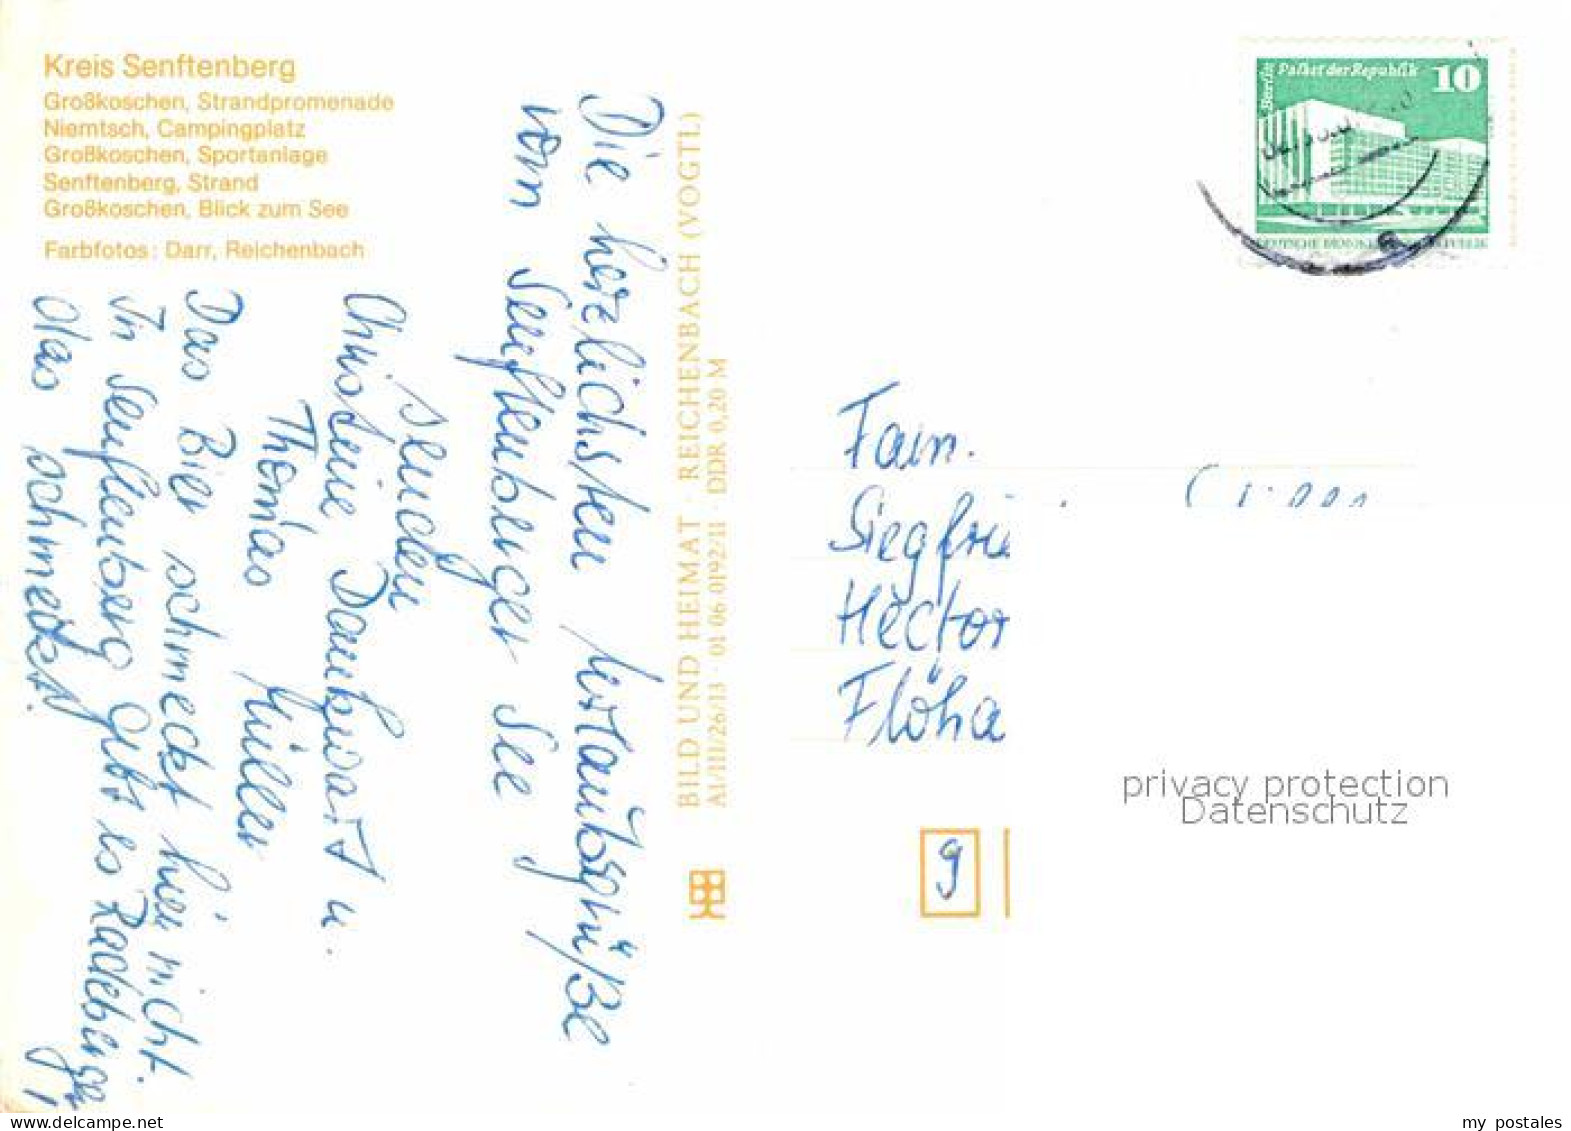 Kreis Senftenberg
Großkoschen, Strandpromenade
Niemtsch, Campingplatz
Großkoschen, Sportanlage
Senftenberg, Strand
Großkoschen, Blick zum See
Farbfotos: Darr, Reichenbach
Die herzlichsten Urlaubsgrüße
vom Senftenberger See
senden
Christine Dankwart u.
Thomas Müller
Das Bier schmeckt hier nicht.
In Senftenberg gibt es Radeberger,
das schmeckt.
BILD UND HEIMAT · REICHENBACH (VOGTL)
A1/III/26/13 · 01 06 0192/11 · DDR 0,20 M
Berlin Palast der Republik 10
DEUTSCHE DEMOKRATISCHE REPUBLIK
Fam.
Siegfrie
Hector
Flöha
9
privacy protection
Datenschutz
my postales